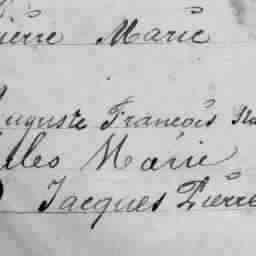 Pierre Marie
Auguste François
Jules Marie
Jacques Pierre